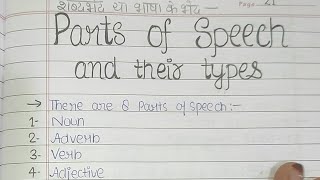 शब्दभेद या भाषा के भेद -
Page 21
Parts of Speech
and their types
→ There are 8 Parts of Speech:-
1- Noun
2- Adverb
3- Verb
4- Adjective